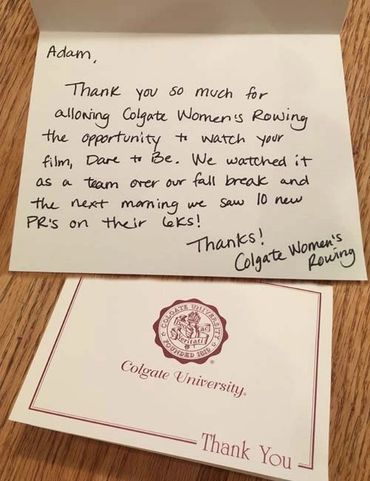 Adam,
Thank you so much for
allowing Colgate Women's Rowing
the opportunity to watch your
film, Dare to Be. We watched it
as a team over our fall break and
the next morning we saw 10 new
PR's on their 6ks!
Thanks!
Colgate Women's
Rowing
COLGATE UNIVERSITY
FOUNDED 1819
Colgate University®
Thank You